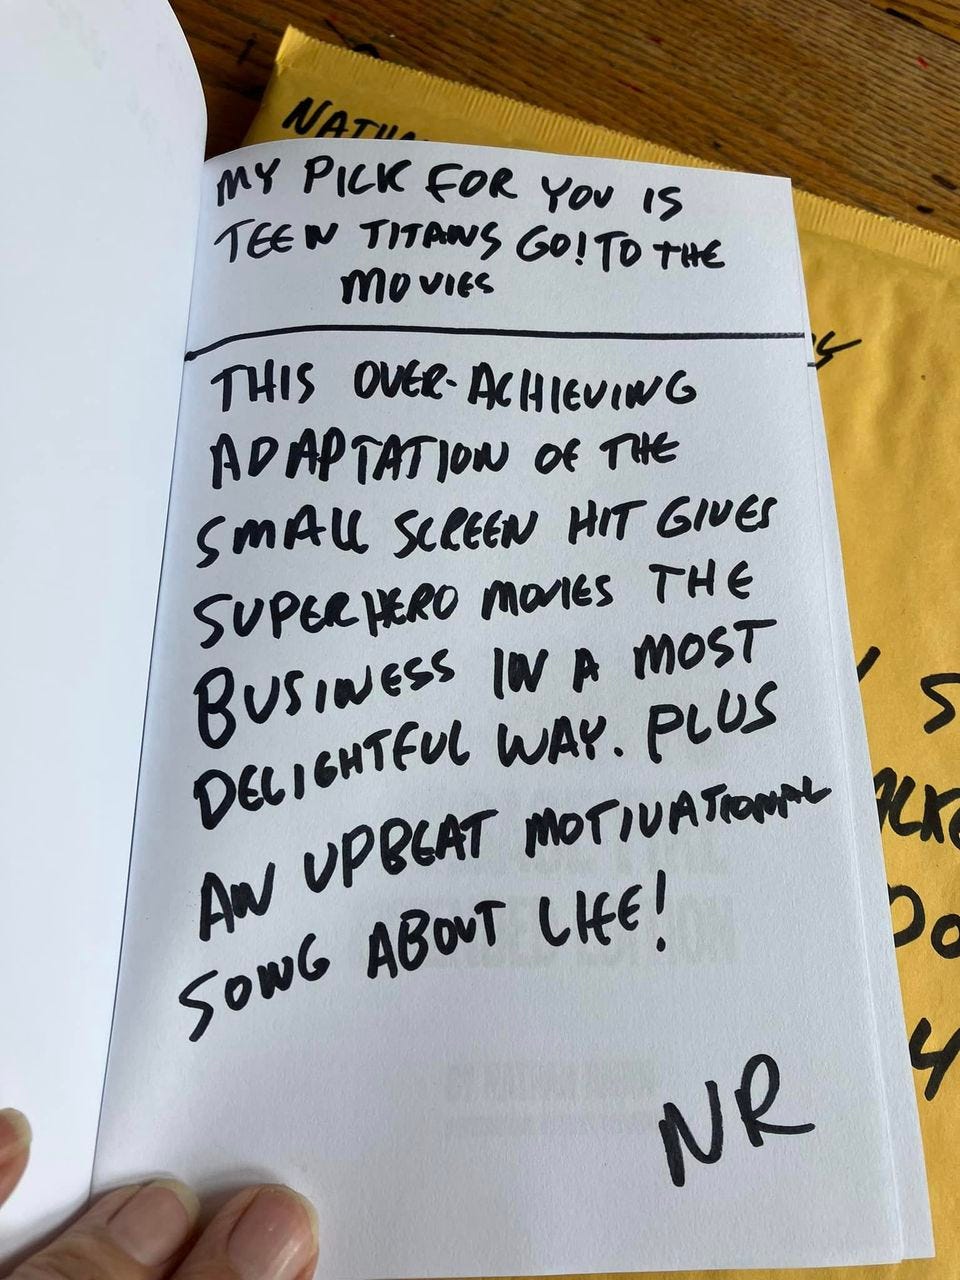 MY PICK FOR YOU IS
TEEN TITANS GO! TO THE
MOVIES
THIS OVER-ACHIEVING
ADAPTATION OF THE
SMALL SCREEN HIT GIVES
SUPERHERO MOVIES THE
BUSINESS IN A MOST
DELIGHTFUL WAY. PLUS
AN UPBEAT MOTIVATIONAL
SONG ABOUT LIFE!
NR